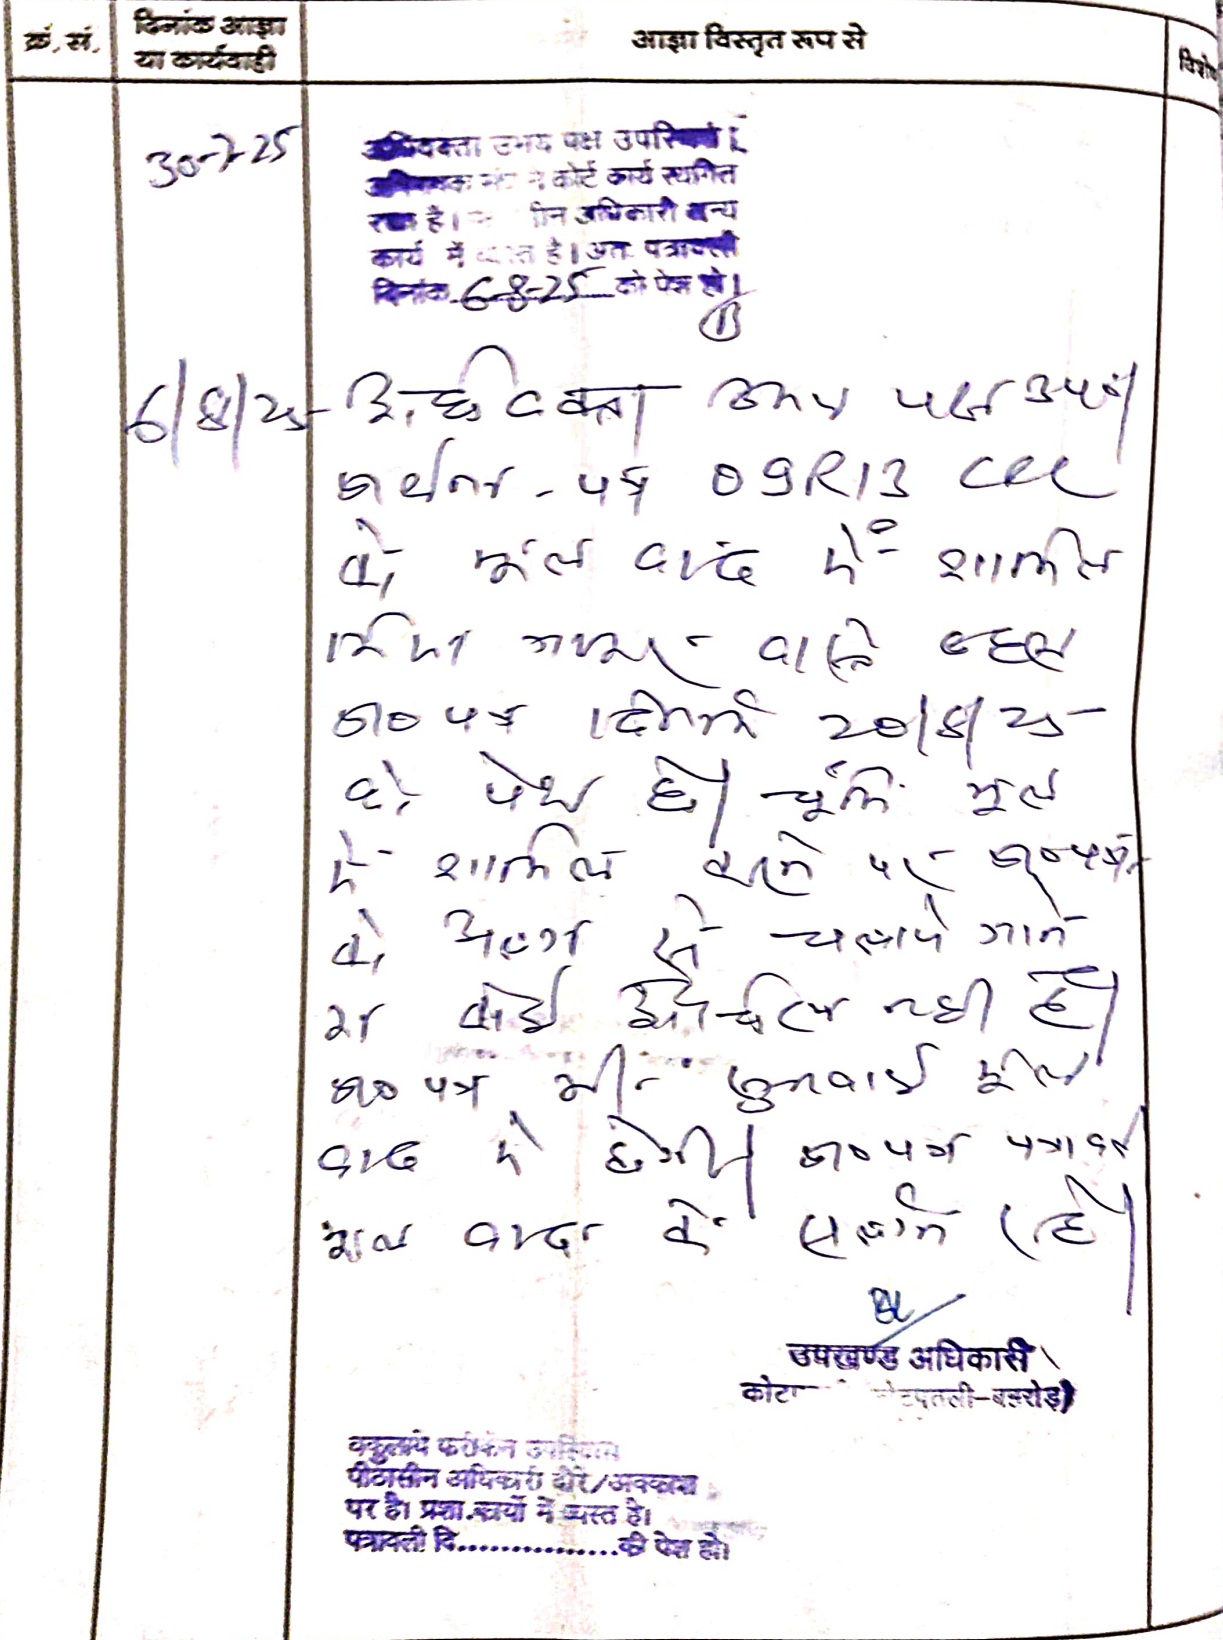 क्रं. सं.
दिनांक आज्ञा
या कार्यवाही
आज्ञा विस्तृत रूप से
30-7-25
अधिवक्ता उभय पक्ष उपस्थित।
कोर्ट कार्य स्थगित
रखा है। अधिकारी अन्य
कार्य में व्यस्त है। अतः पत्रावली
दिनांक 6-8-25 को पेश हो।
6/8/25 अधिवक्ता उभय पक्ष उप०।
प्रार्थना-पत्र O9R13 CPC
को मूल वाद में शामिल
किया जाकर वास्ते बहस
प्रा० पत्र दिनांक 20/8/25
को पेश हो। चूंकि मूल
में शामिल करने पर प्रा०पत्र
को अलग से चलाये जाने
का कोई औचित्य नही है।
प्रा० पत्र की सुनवाई मूल
वाद में होगी। प्रा० पत्र पत्रावली
मूल वाद के संलग्न रहे।
उपखण्ड अधिकारी
कोटपूतली-बहरोड़)
वकुलाये फरीकेन उपस्थित
पीठासीन अधिकारी दौरे/अवकाश
पर है। प्रशा. कार्यो में व्यस्त है।
पत्रावली दि...............को पेश हो।